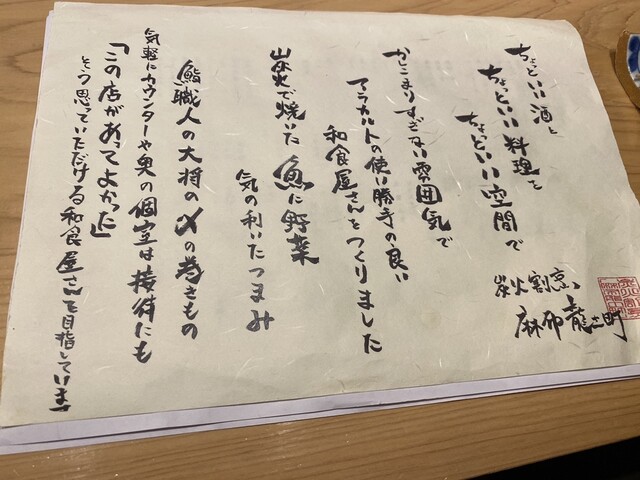 ちょっといい酒と
ちょっといい料理を
ちょっといい空間で
かしこまりすぎない雰囲気で
アラカルトの使い勝手の良い
和食屋さんをつくりました
炭火で焼いた魚に野菜
気の利いたつまみ
鮨職人の大将の〆の巻きもの
気軽にカウンターや奥の個室は接待にも
「この店があってよかった」
そう思っていただける和食屋さんを目指しています
炭火割烹
麻布龍土町